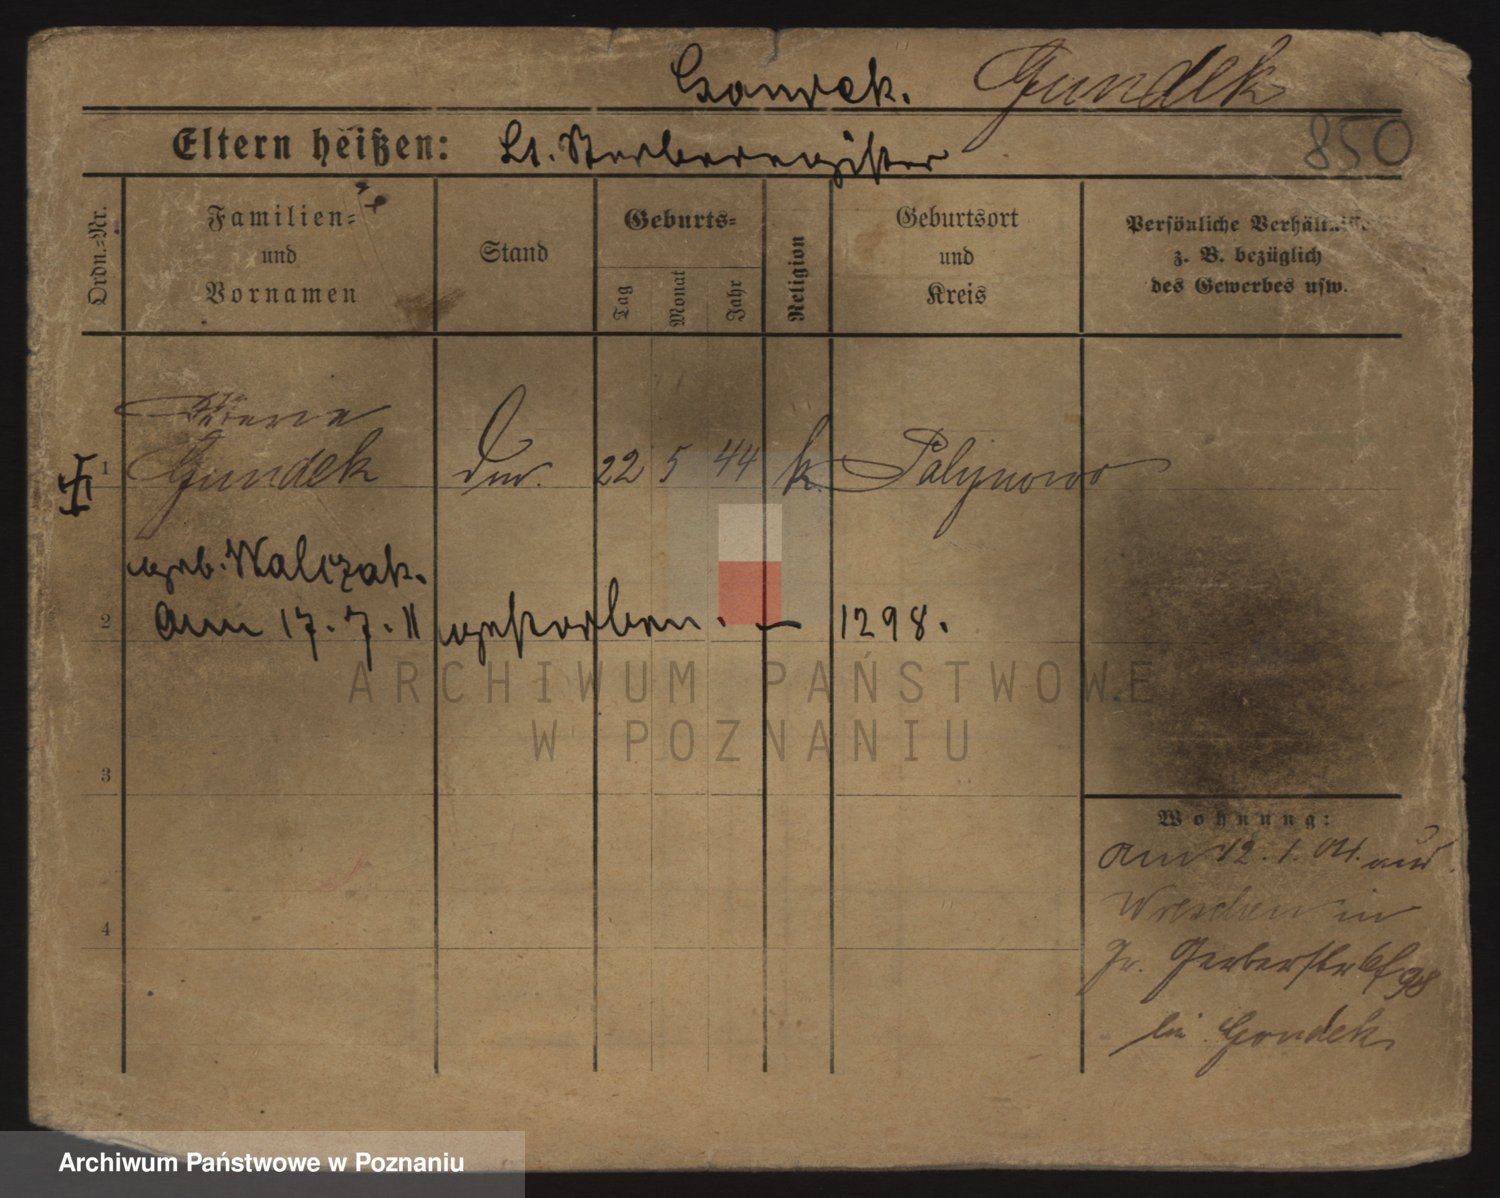 Gondek. Gundek
850
Eltern heißen: Lt. Sterberegister
Ordn.=Nr.
Familien=
und
Vornamen
Stand
Geburts=
Tag
Monat
Jahr
Religion
Geburtsort
und
Kreis
Persönliche Verhältnisse
z. B. bezüglich
des Gewerbes usw.
1 Gundek 22 5 44 k.
geb. Walczak.
2 am 17. 7. 11 gestorben. — 1298.
3
4
Wohnung:
am 12. 1. 04. aus
Wreschen in
Gr. Gerberstr
bei Gondek
ARCHIWUM PAŃSTWOWE
W POZNANIU
Archiwum Państwowe w Poznaniu